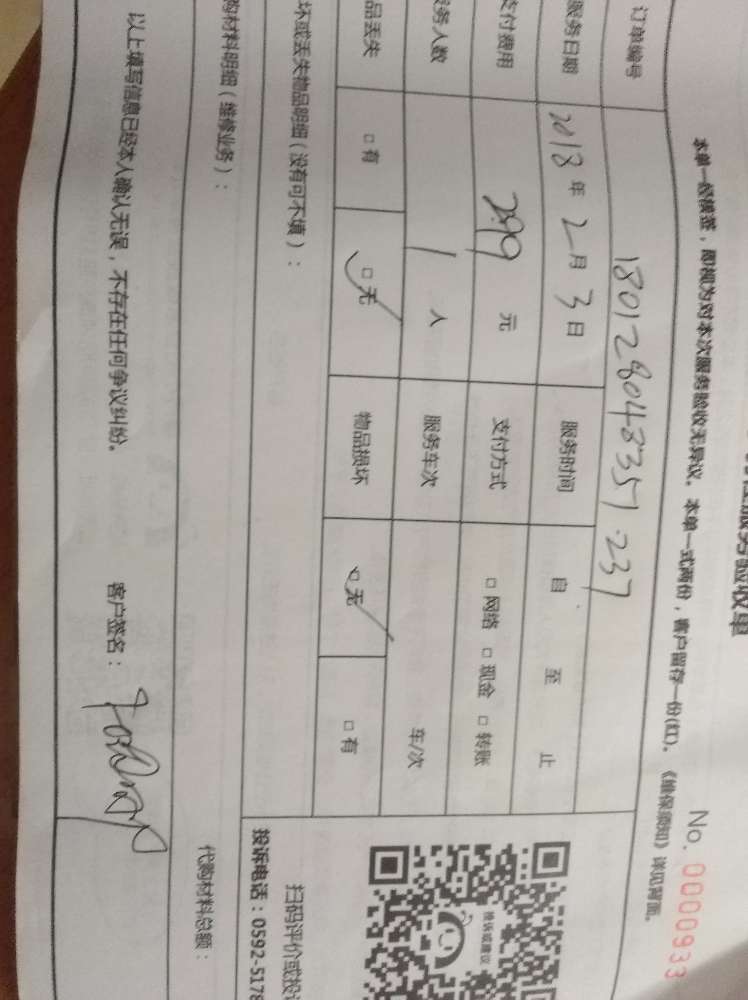 服务验收单
No. 0000933
本单一经核签，即视为对本次服务验收无异议。本单一式两份，客户留存一份(红)。《维保须知》详见背面。
订单编号 180128048351237
服务日期 2018年2月3日 服务时间 自 至 止
支付费用 299元 支付方式 □网络 □现金 □转账
务人数 1人 服务车次 车/次
品丢失 □有 □无 物品损坏 □无 □有
坏或丢失物品明细（没有可不填）：
购材料明细（维修业务）：
代购材料总额：
以上填写信息已经本人确认无误，不存在任何争议纠纷。 客户签名：
投诉建议
扫码评价或投
投诉电话：0592-5178